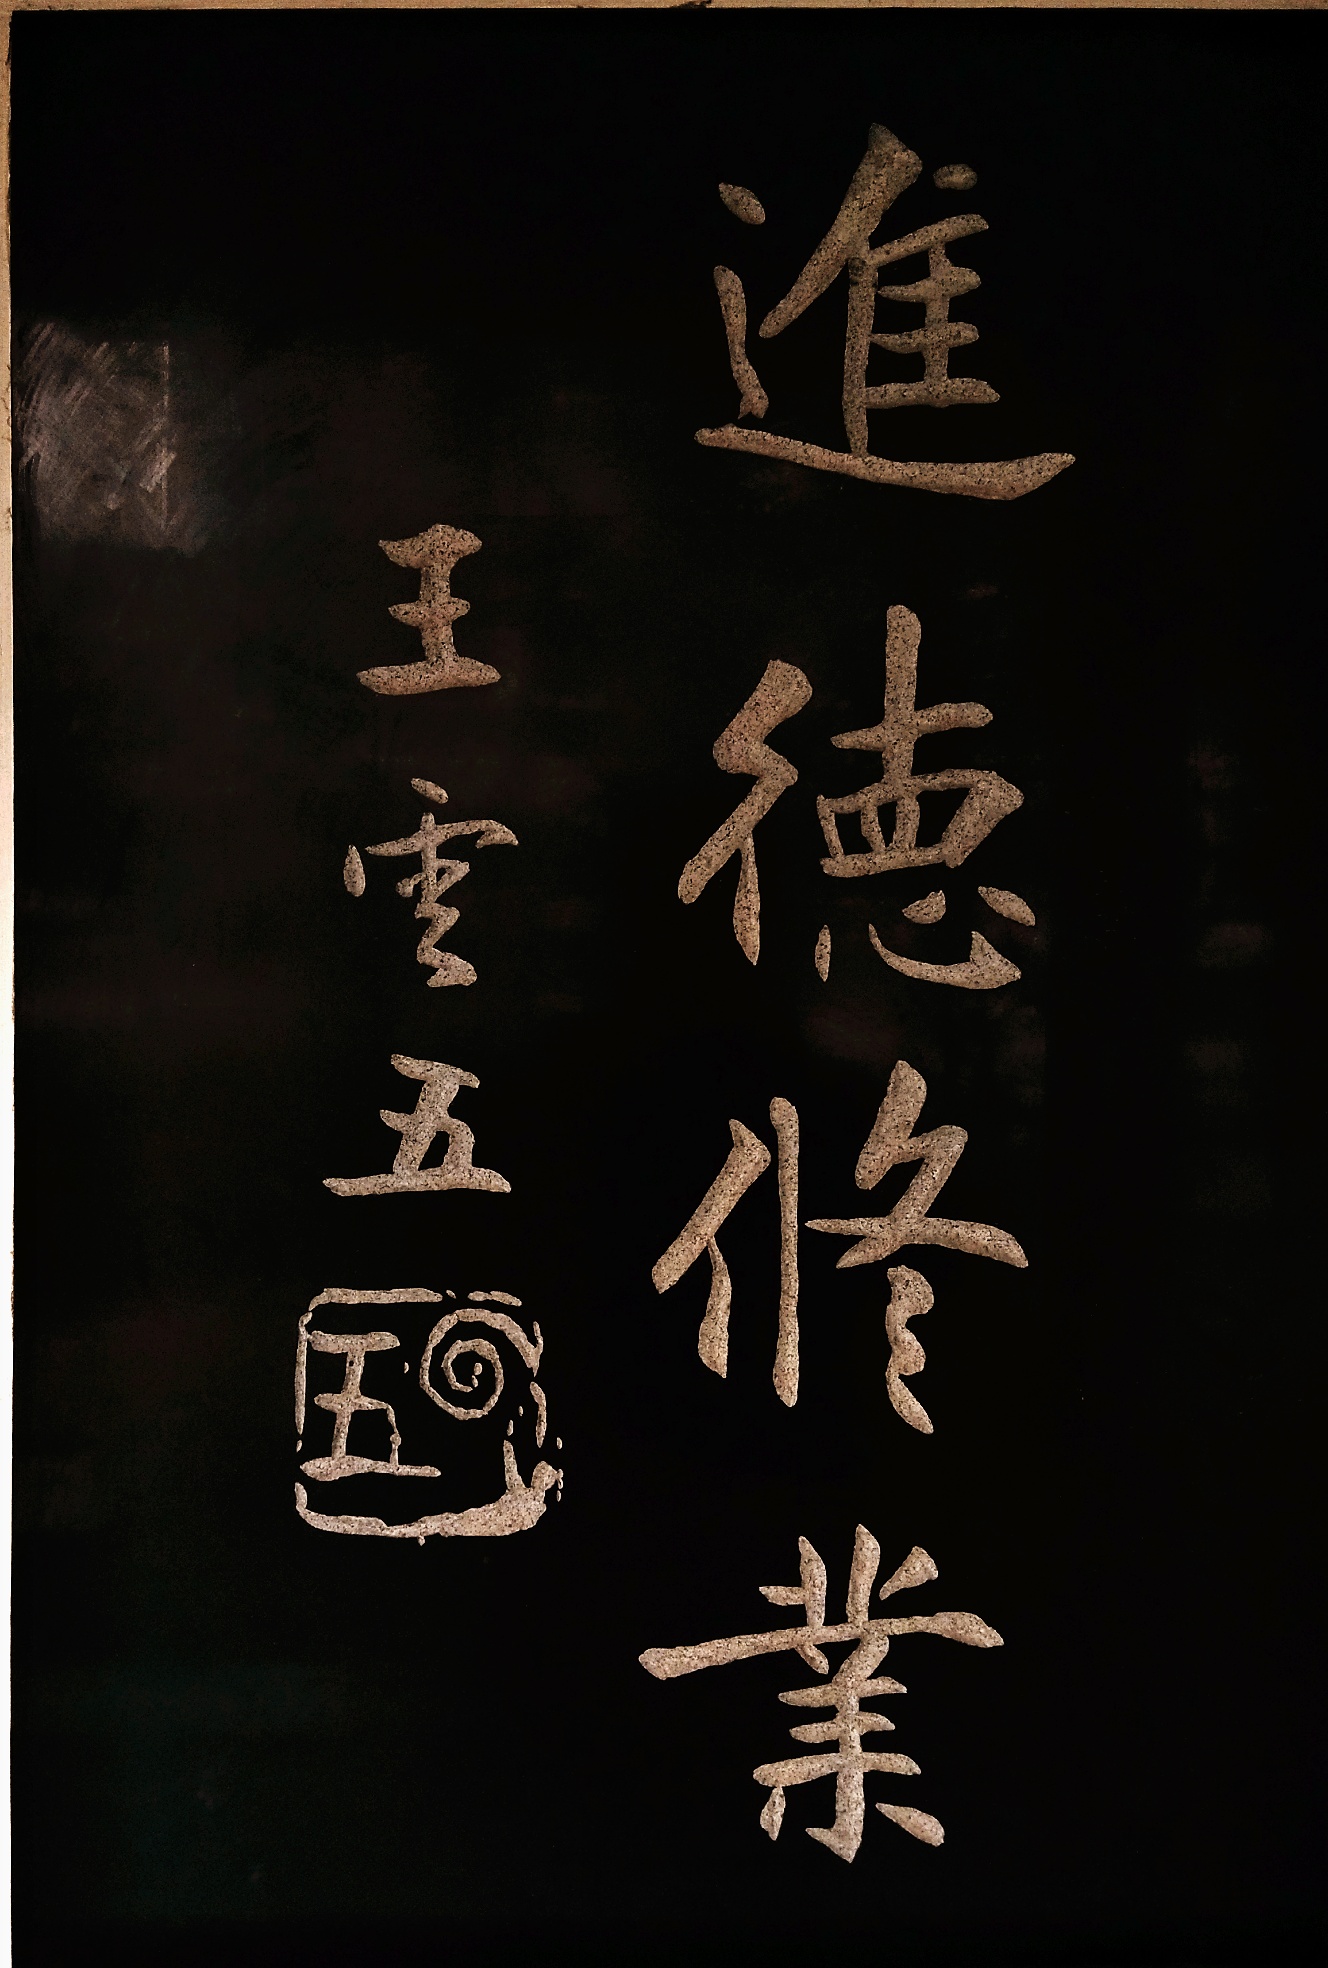 進德修業
王雲五
雲五